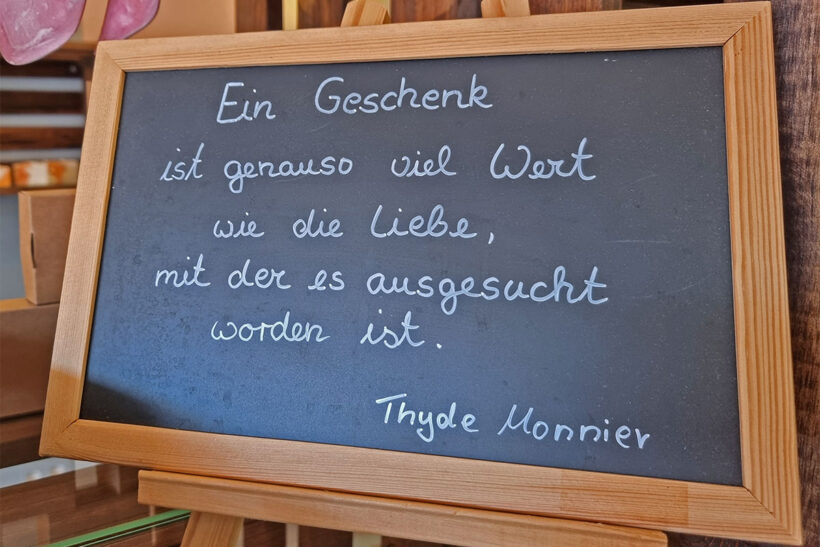 Ein Geschenk
ist genauso viel Wert
wie die Liebe,
mit der es ausgesucht
worden ist.
Thyde Monnier